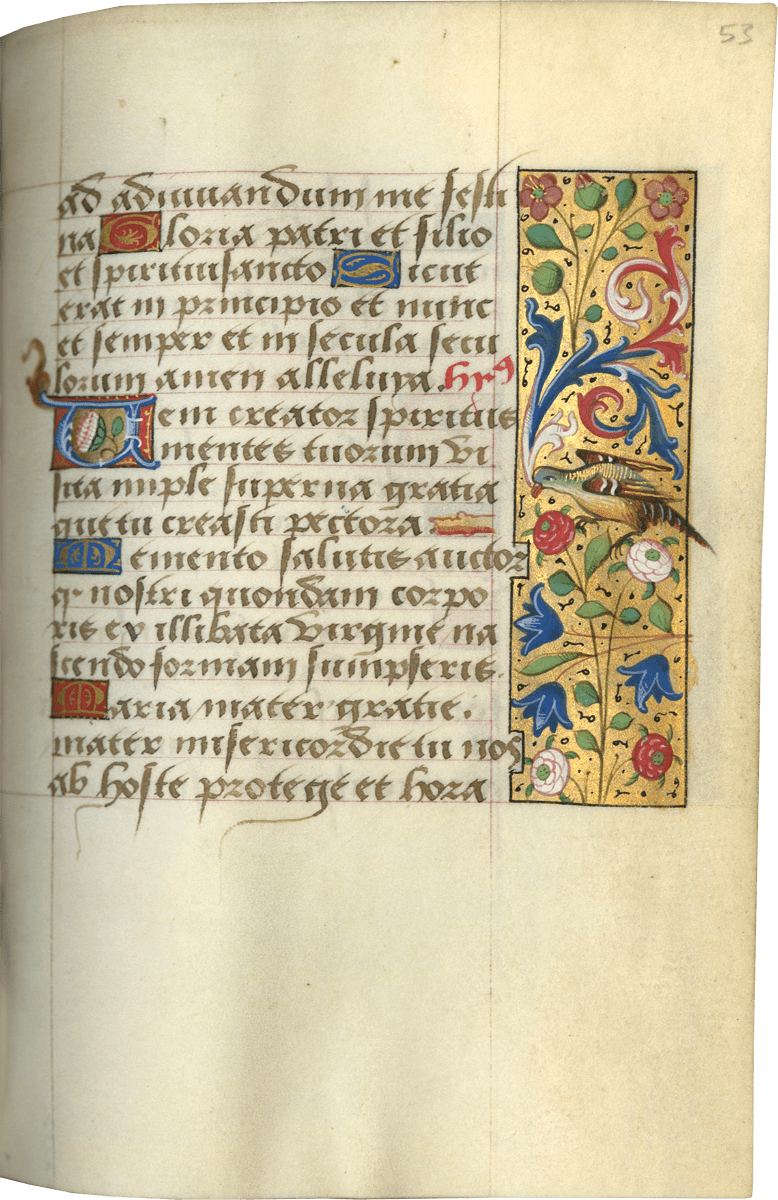 53
ad adiuuandum me festi
na Gloria patri et filio
et spirituisancto Sicut
erat in principio et nunc
et semper et in secula secu
lorum amen alleluya. hyꝰ
Veni creator spiritus
mentes tuorum vi
sita imple superna gratia
que tu creasti pectora
Memento salutis auctor
qꝛ nostri quondam corpo
ris ex illibata virgine na
scendo formam sumpseris.
Maria mater gratie.
mater misericordie tu nos
ab hoste protege et hora